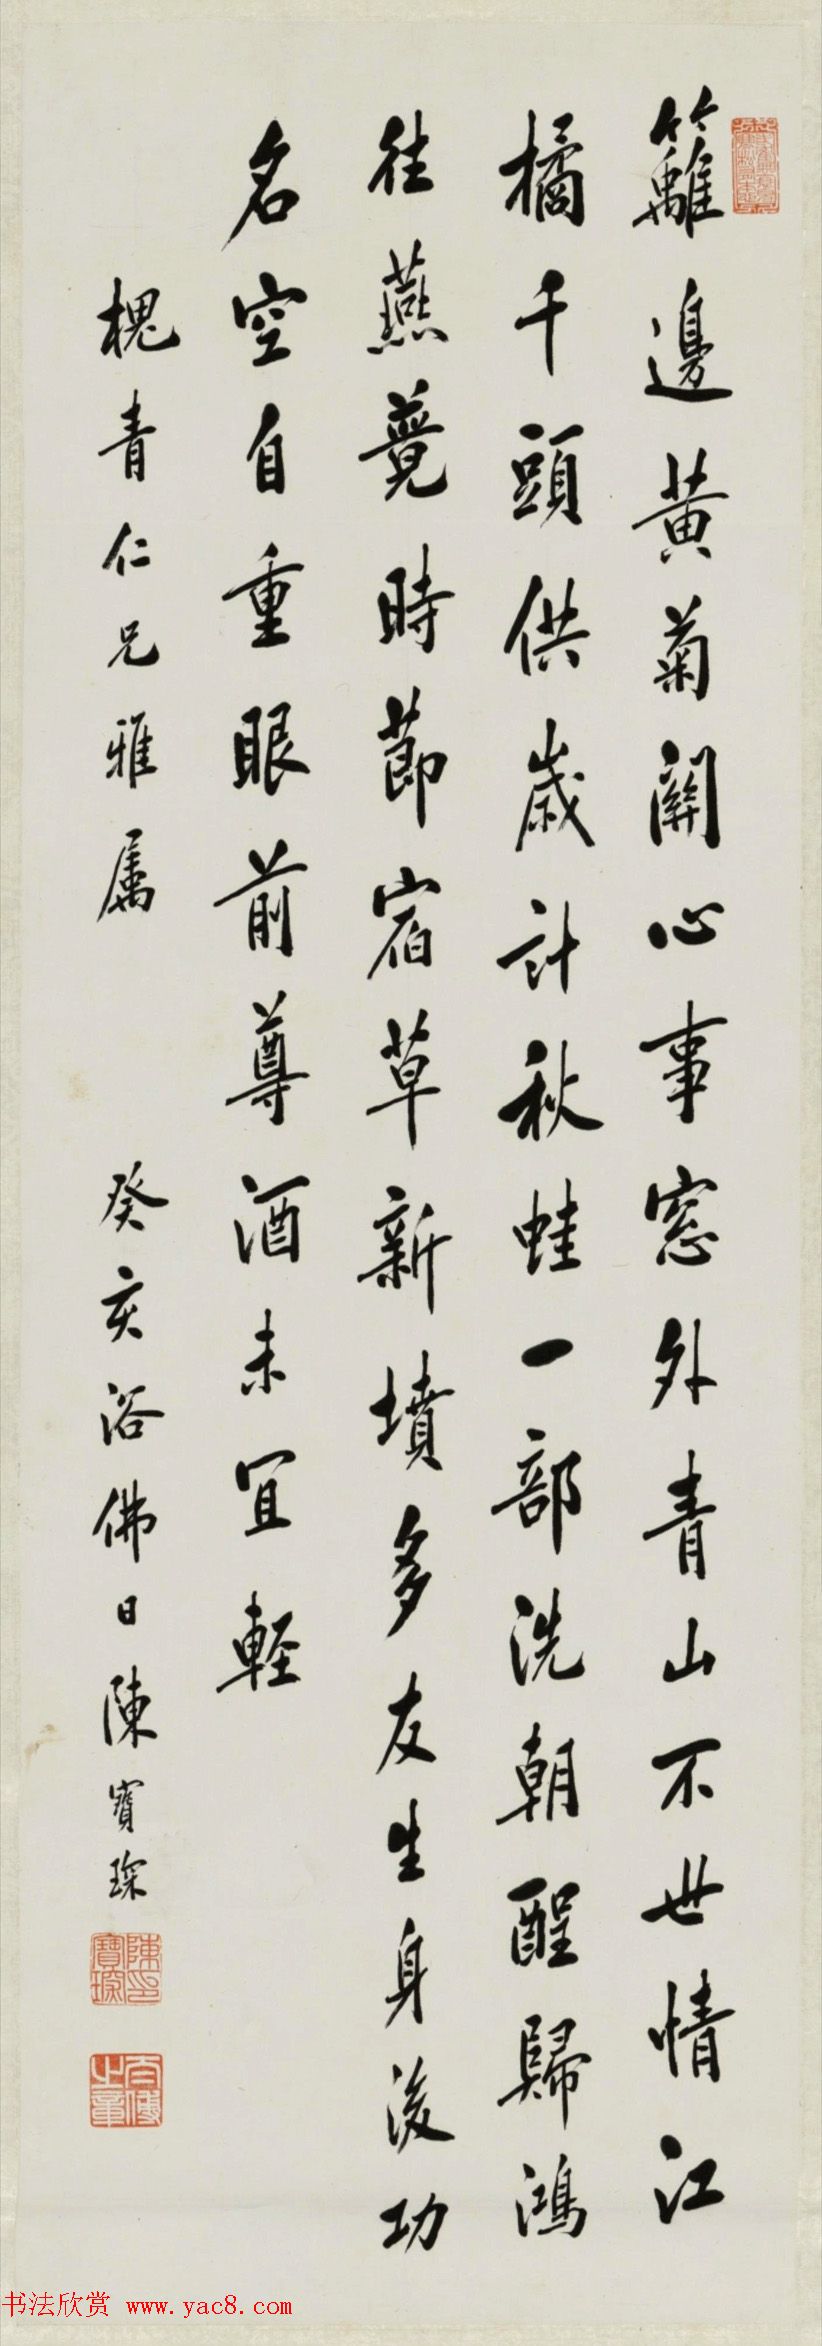 籬邊黃菊關心事窓外青山不世情江
橘千頭供歲計秋蛙一部洗朝酲歸鴻
往燕競時節宿草新墳多友生身後功
名空自重眼前尊酒未宜輕
槐青仁兄雅属
癸亥浴佛日陳寶琛
陳寶琛印
太傅之章
书法欣赏 www.yac8.com